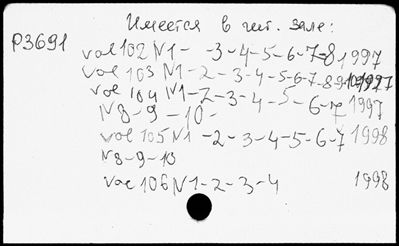 Имеется в чит. зале:
P3691
vol 102 N1- -3-4-5-6-7-8 1997
vol 103 N1-2-3-4-5-6-7-8-9-10 1997
vol 104 N1-2-3-4-5-6-7 1997
N8-9-10-
vol 105 N1-2-3-4-5-6-7 1998
N8-9-10
vol 106 N1-2-3-4 1998